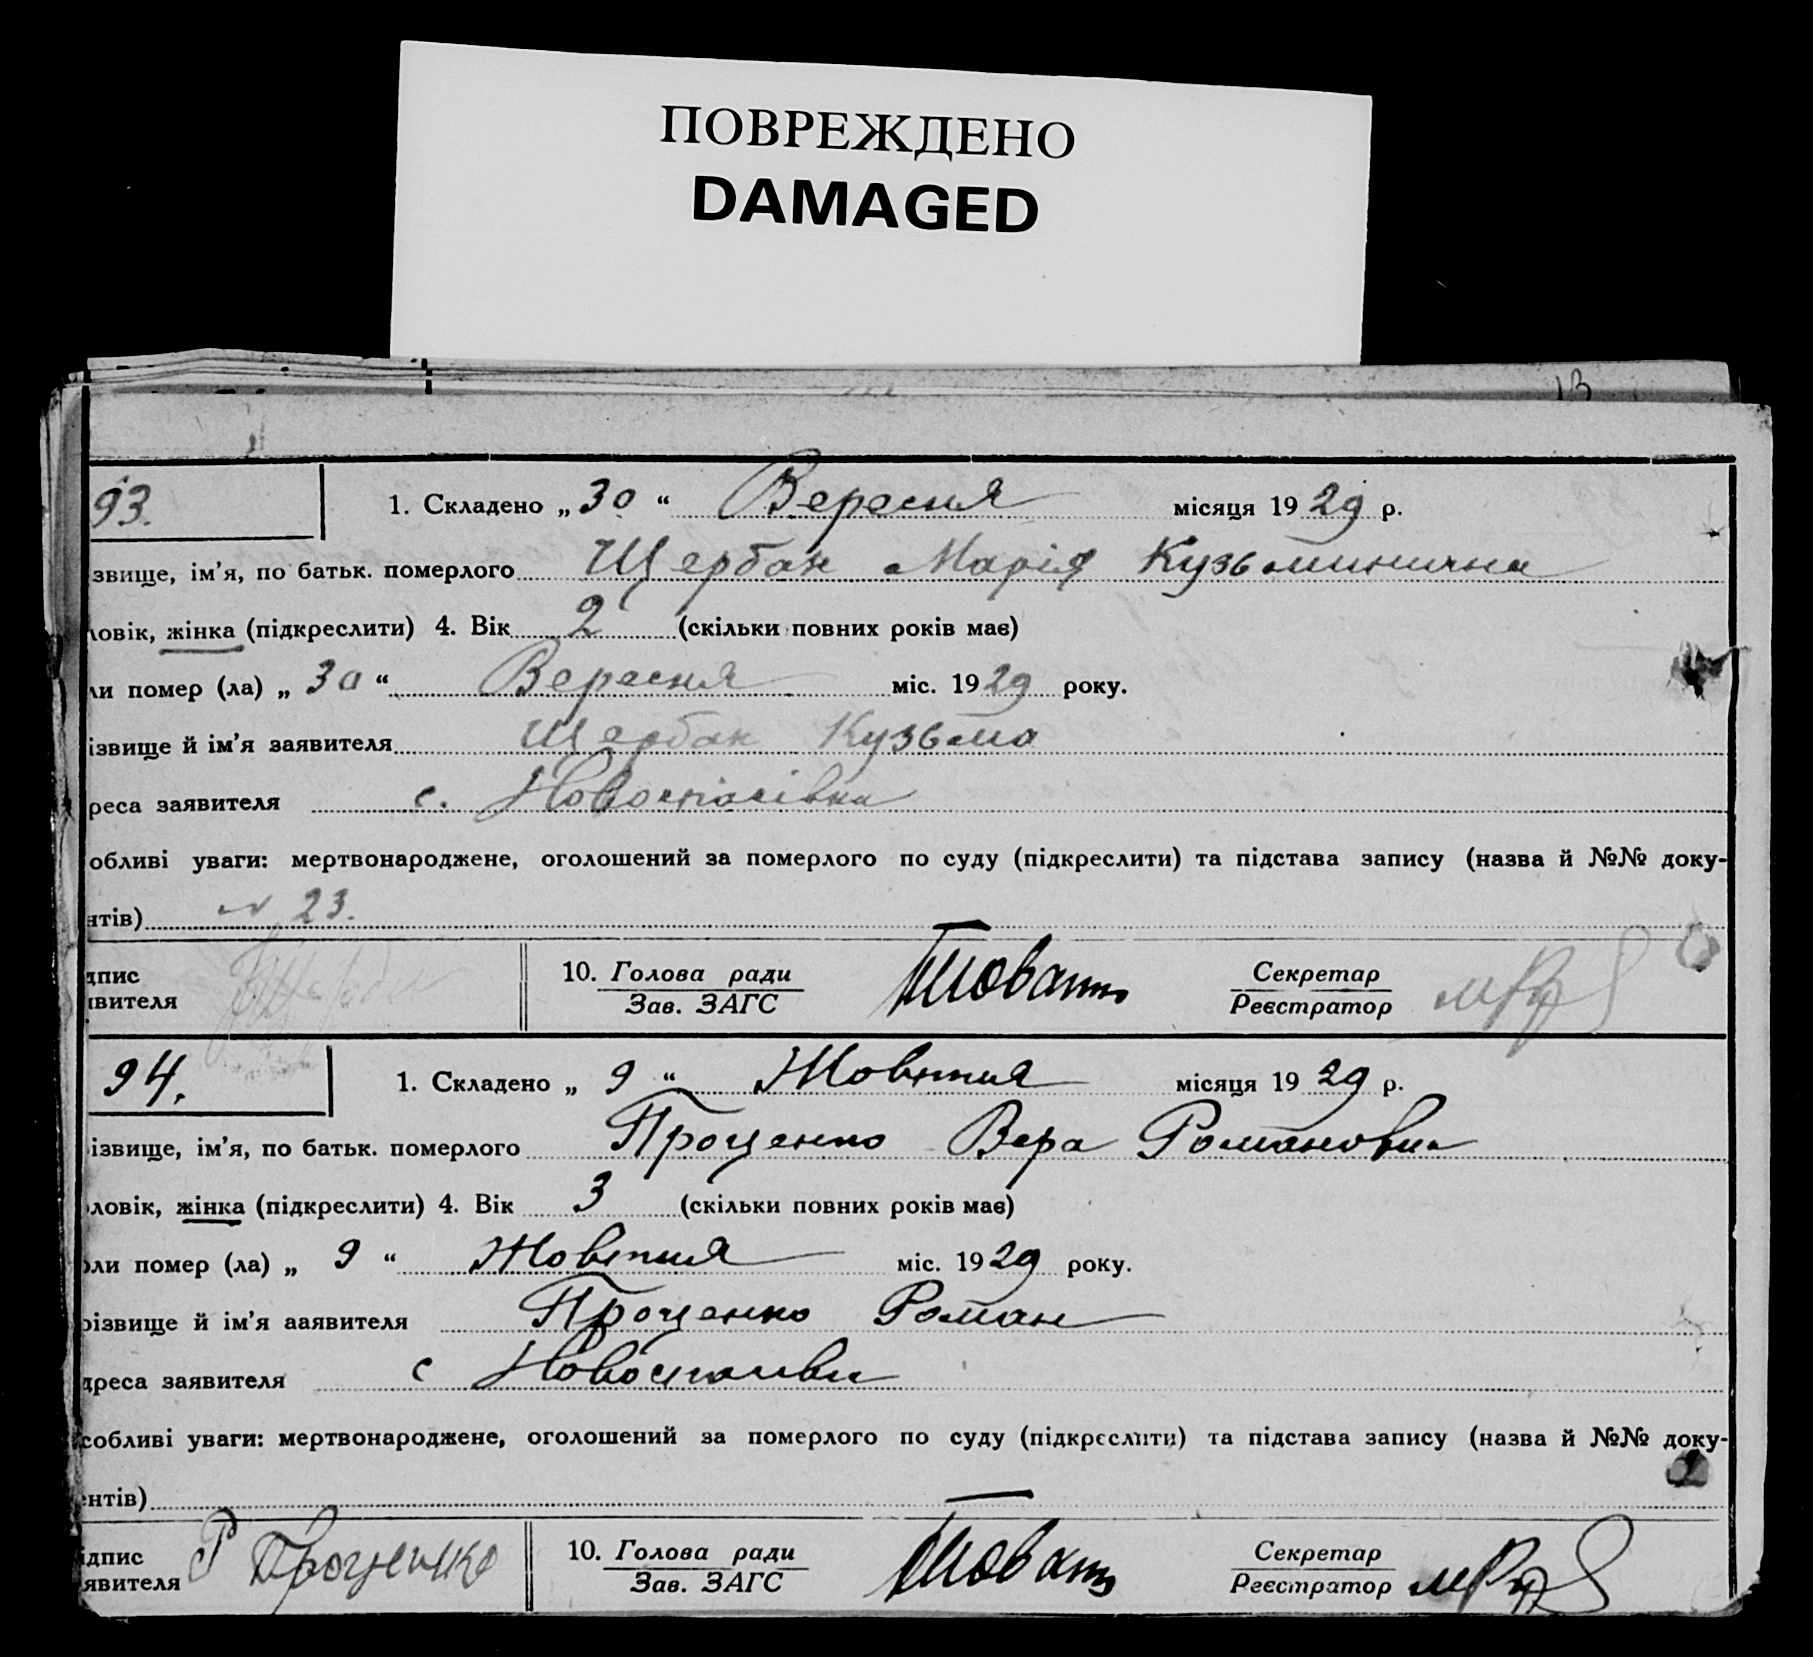 ПОВРЕЖДЕНО
DAMAGED
13
93. 1. Складено „ 30 “ Вересня місяця 19 29 р.
звище, ім’я, по батьк. померлого Щербак Марія Кузьминична
ловік, жінка (підкреслити) 4. Вік 2 (скільки повних років має)
ли помер (ла) „ 30 “ Вересня міс. 19 29 року.
ізвище й ім’я заявителя Щербак Кузьма
реса заявителя с. Новоспасівка
обливі уваги: мертвонароджене, оголошений за померлого по суду (підкреслити) та підстава запису (назва й №№ доку-
нтів) N 23.
дпис
явителя
10. Голова ради
Зав. ЗАГС
Секретар
Реєстратор
94. 1. Складено „ 9 “ Жовтня місяця 19 29 р.
ізвище, ім’я, по батьк. померлого Проценко Вера Романовна
ловік, жінка (підкреслити) 4. Вік 3 (скільки повних років має)
оли помер (ла) „ 9 “ Жовтня міс. 19 29 року.
різвище й ім’я ааявителя Проценко Роман
дреса заявителя с Новоспасивки
собливі уваги: мертвонароджене, оголошений за померлого по суду (підкреслити) та підстава запису (назва й №№ доку-
ентів)
ідпис
явителя Р Проценко
10. Голова ради
Зав. ЗАГС
Секретар
Реєстратор